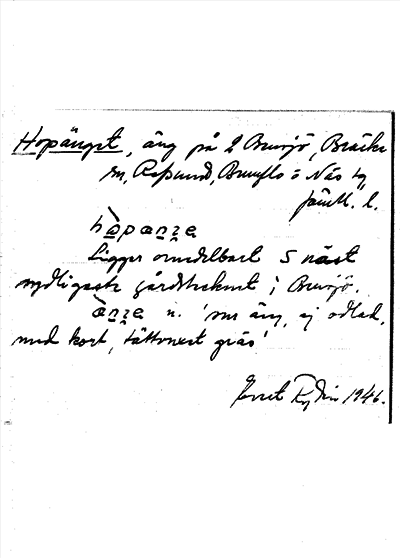 Hopänget, äng på 2 Bursjö, Bräcke
sn, Refsund, Brunflo o Näs tg
Jämtl. l.
hòpanʒe
Ligger omedelbart S näst
sydligaste gårdstecknet i Bursjö.
ànʒe n. 'sur äng, ej odlad,
med kort, tättvuxet gräs'
Ernst Rydin 1946.